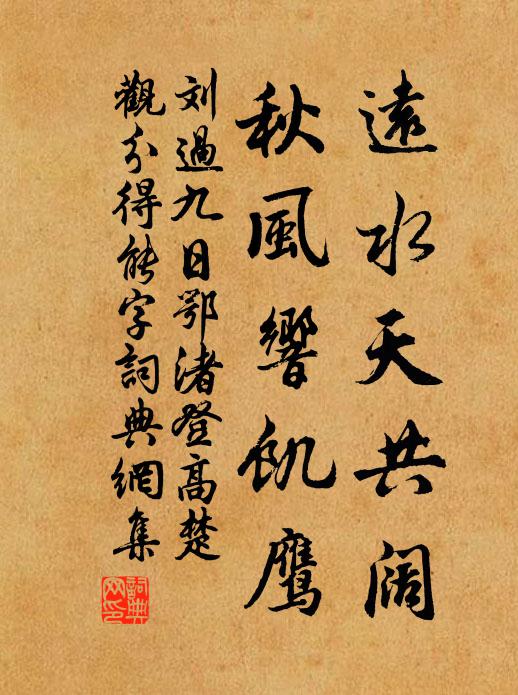 遠水天共闊
秋風響飢鷹
刘過九日鄂渚登高楚
觀分得能字詞典網集
詞典
网印